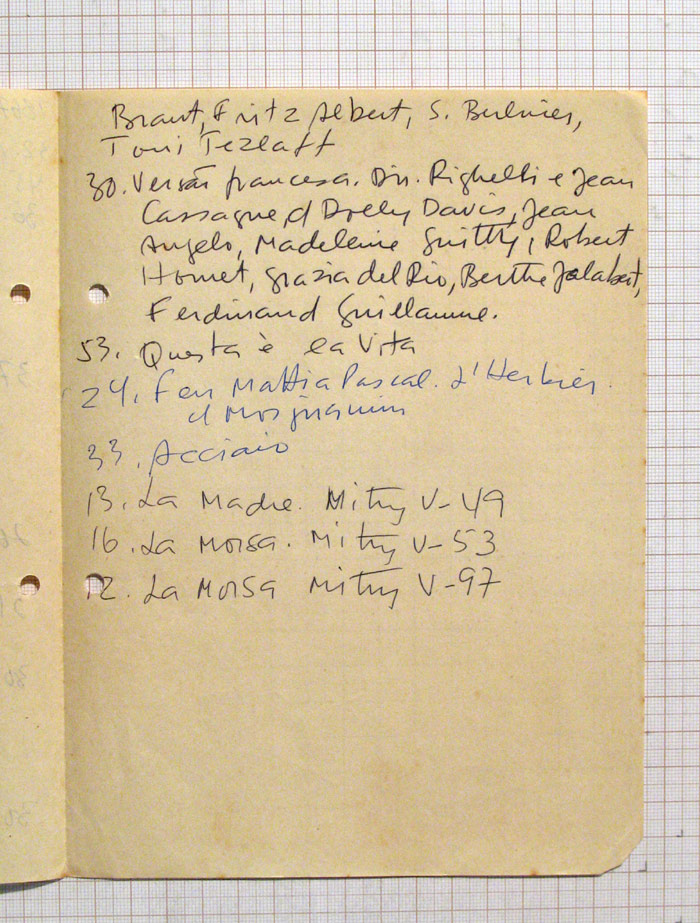 Braut, Fritz Albert, S. Berluier,
Toni Tezlaff
30. Versão francesa. Dir. Righelli e Jean
Cassagne, d Dolly Davis, Jean
Angelo, Madeleine Guitty, Robert
Homet, Grazia del Rio, Berthe Jalabert,
Ferdinand Guillaume.
53. Questa è la Vita
24. Feu Mattia Pascal. L'Herbier.
d Mosjnamin
33. Acciaio
13. La Madre. Mitry V-49
16. La Morsa. Mitry V-53
12. La Morsa Mitry V-97